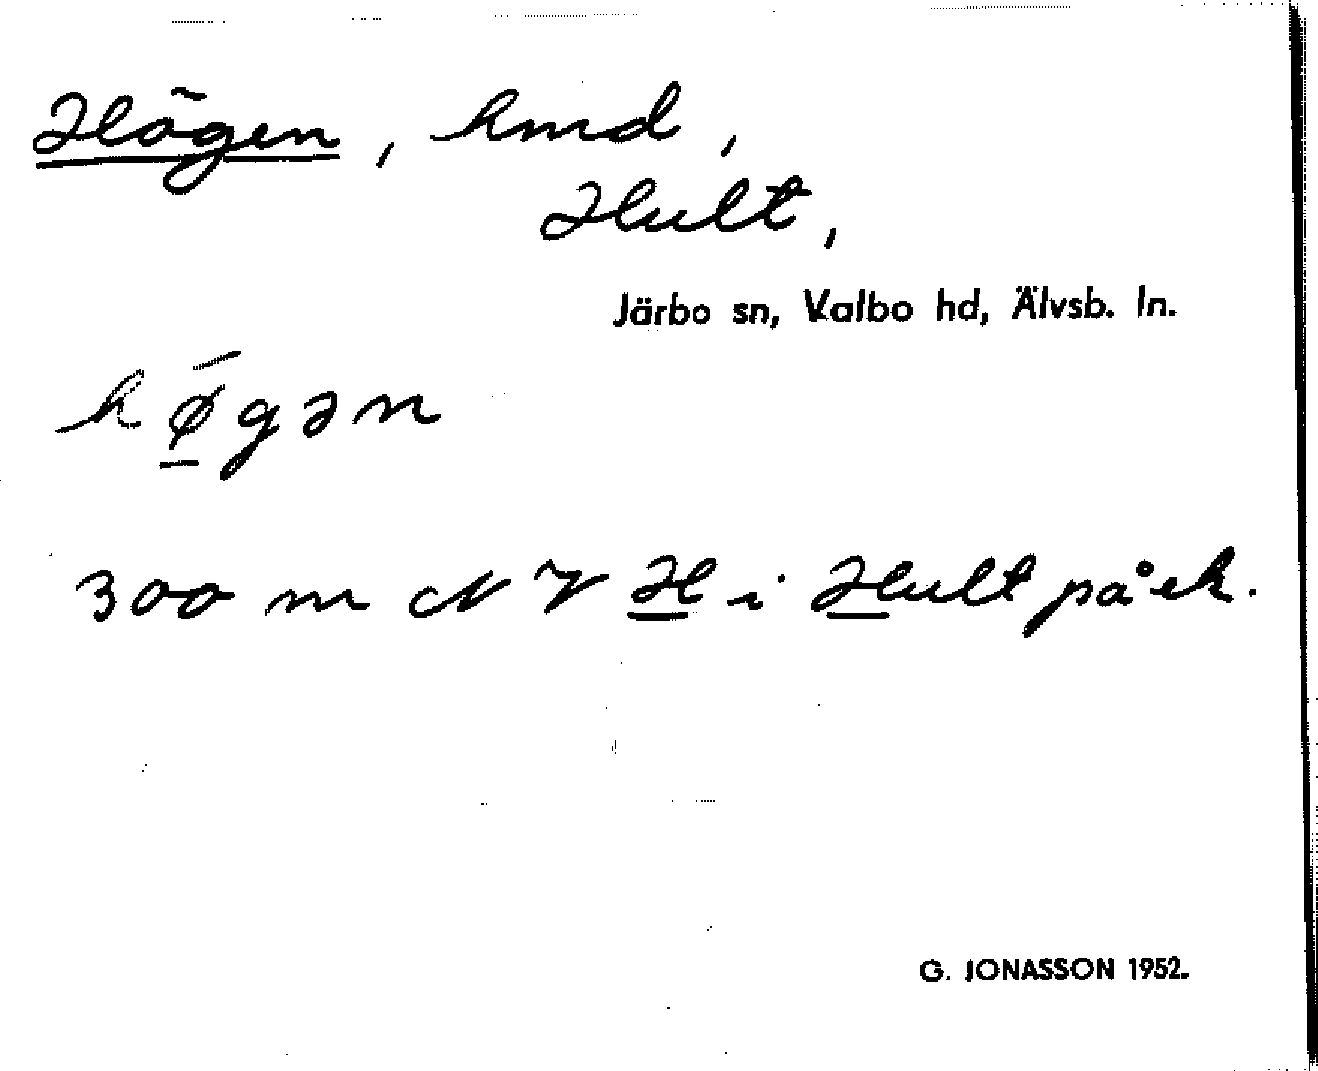 Högen, hmd,
Hult,
Järbo sn, Valbo hd, Älvsb. ln.
hǿ̱gən
300 m NV H i Hult på ek.
G. JONASSON 1952.